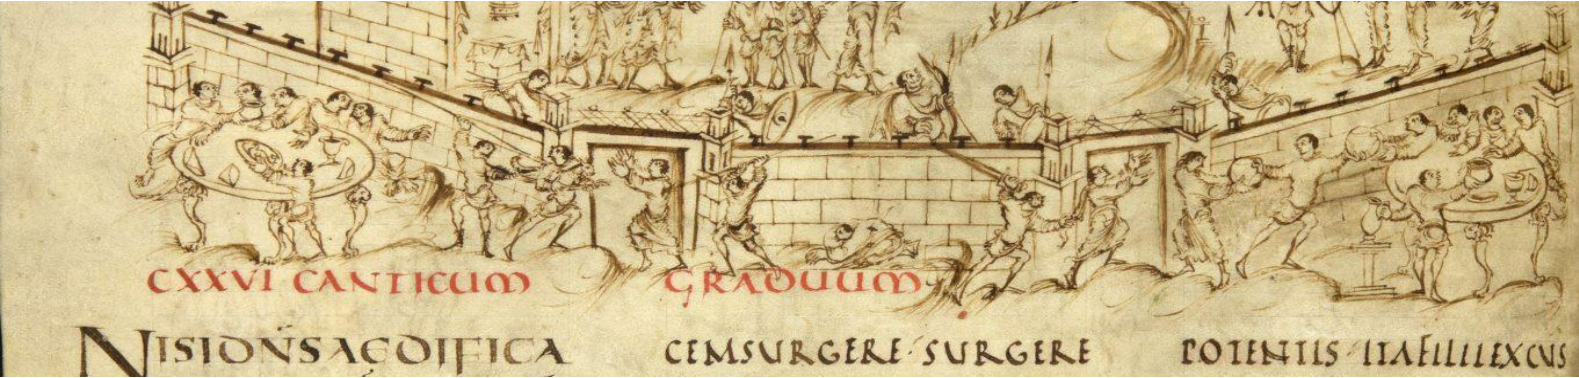 CXXVI CANTICUM GRADUUM
NISIDŃSAEDIFICA
CEMSURGERE·SURGERE
POTENTIS·ITAFILIIEXCUS